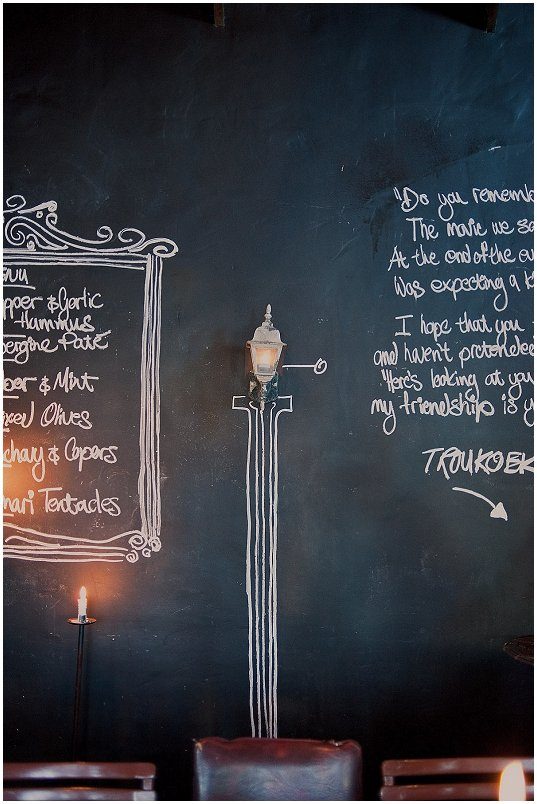 pper & Garlic
Hummus
bergine Paté
& Mint
Olives
& Capers
mari Tentacles
"Do you rememb
The movie we sa
At the end of the ev
Was expecting a k
I hope that you
and havent pretended
"Here's looking at you
my friendship is y
TROUKOEK